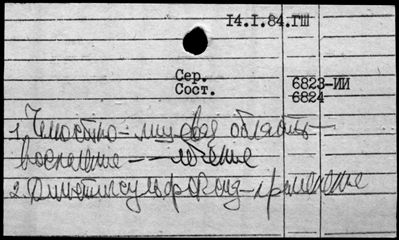 14.I.84.ГШ
Сер.
Сост.
6823-ИИ
6824
1. Челюстно-лицевая область-
воспаление — лечение
2. Диметилсульфоксид-применение